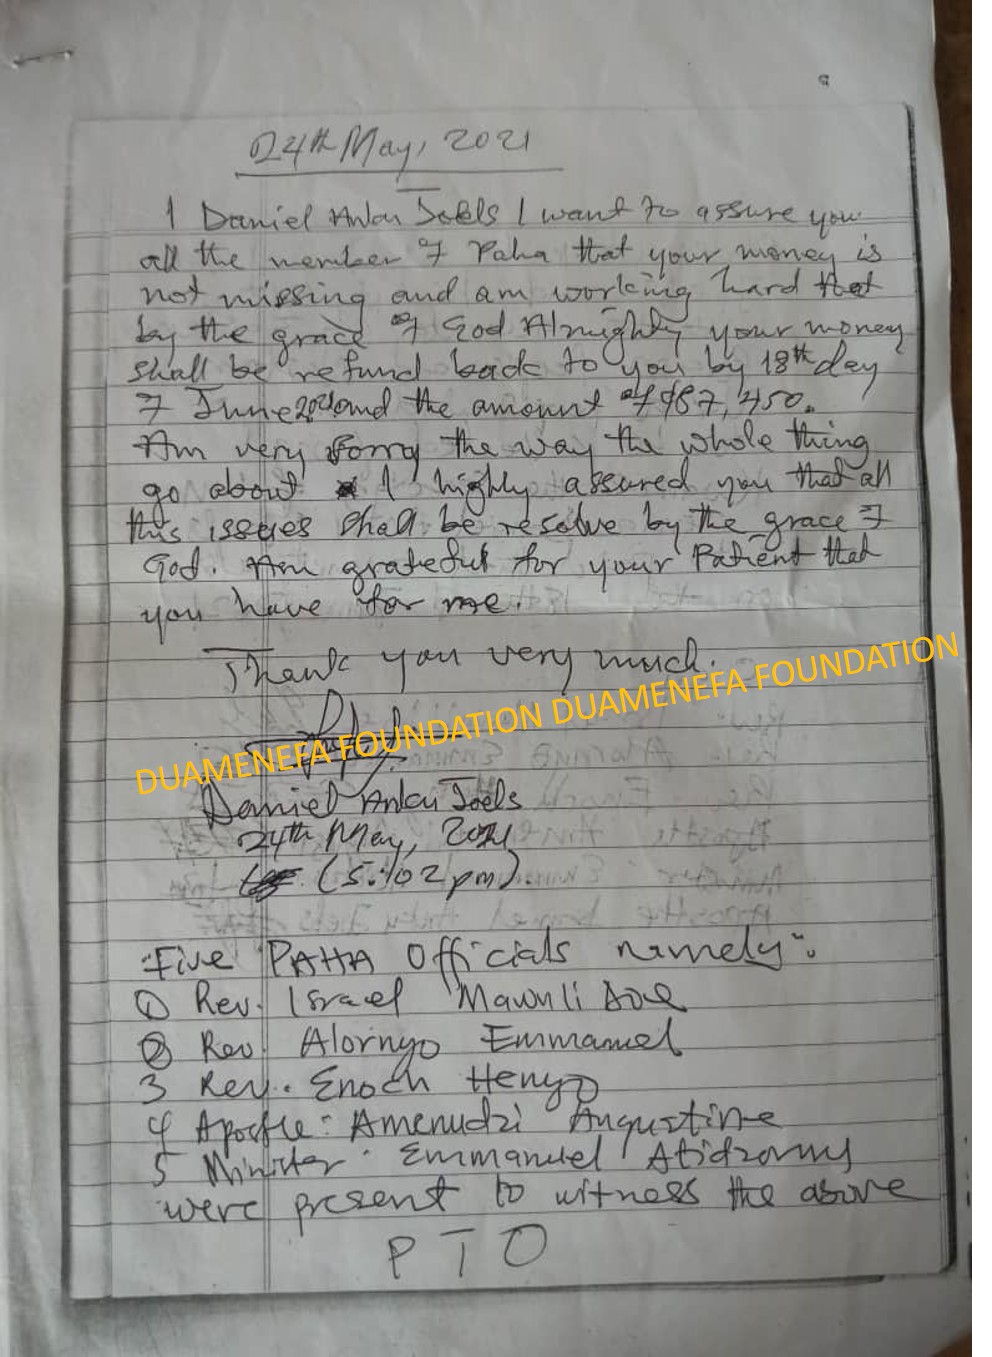 24th May, 2021
I Daniel Anku Joels I want to assure you
all the member of Paha that your money is
not missing and am working hard that
by the grace of God Almighty your money
shall be refund back to you by 18th day
of June 2021 and the amount of
Am very sorry the way the whole thing
go about I highly assured you that all
this issues shall be resolve by the grace of
God. Am grateful for your Patient that
you have for me.
Thank you very much.
DUAMENEFA FOUNDATION DUAMENEFA FOUNDATION
Daniel Anku Joels
24th May, 2021
(5:02pm).
Five PAHA Officials namely:
① Rev. Israel Mawuli
② Rev. Alornyo Emmanuel
3 Rev. Enoch Henyo
4 Apostle: Amenudzi Augustine
5 Minister: Emmanuel
were present to witness the above
PTO